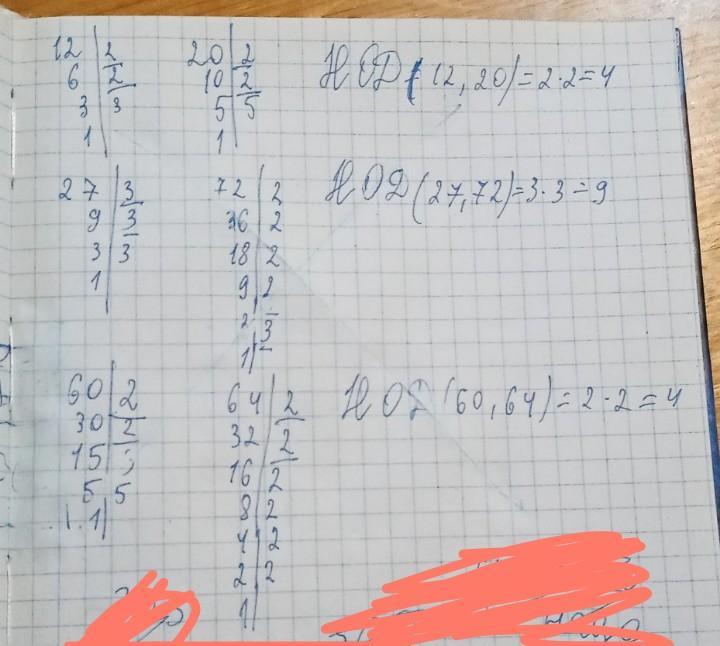 12 | 2 20 | 2 НОД (12, 20) = 2·2 = 4
6 | 2 10 | 2
3 | 3 5 | 5
1 | 1 |
27 | 3 72 | 2 НОД (27, 72) = 3·3 = 9
9 | 3 36 | 2
3 | 3 18 | 2
1 | 9 | 2
2 | 3
1 |
60 | 2 64 | 2 НОД (60, 64) = 2·2 = 4
30 | 2 32 | 2
15 | 16 | 2
5 | 5 8 | 2
1 | 4 | 2
2 | 2
1 |